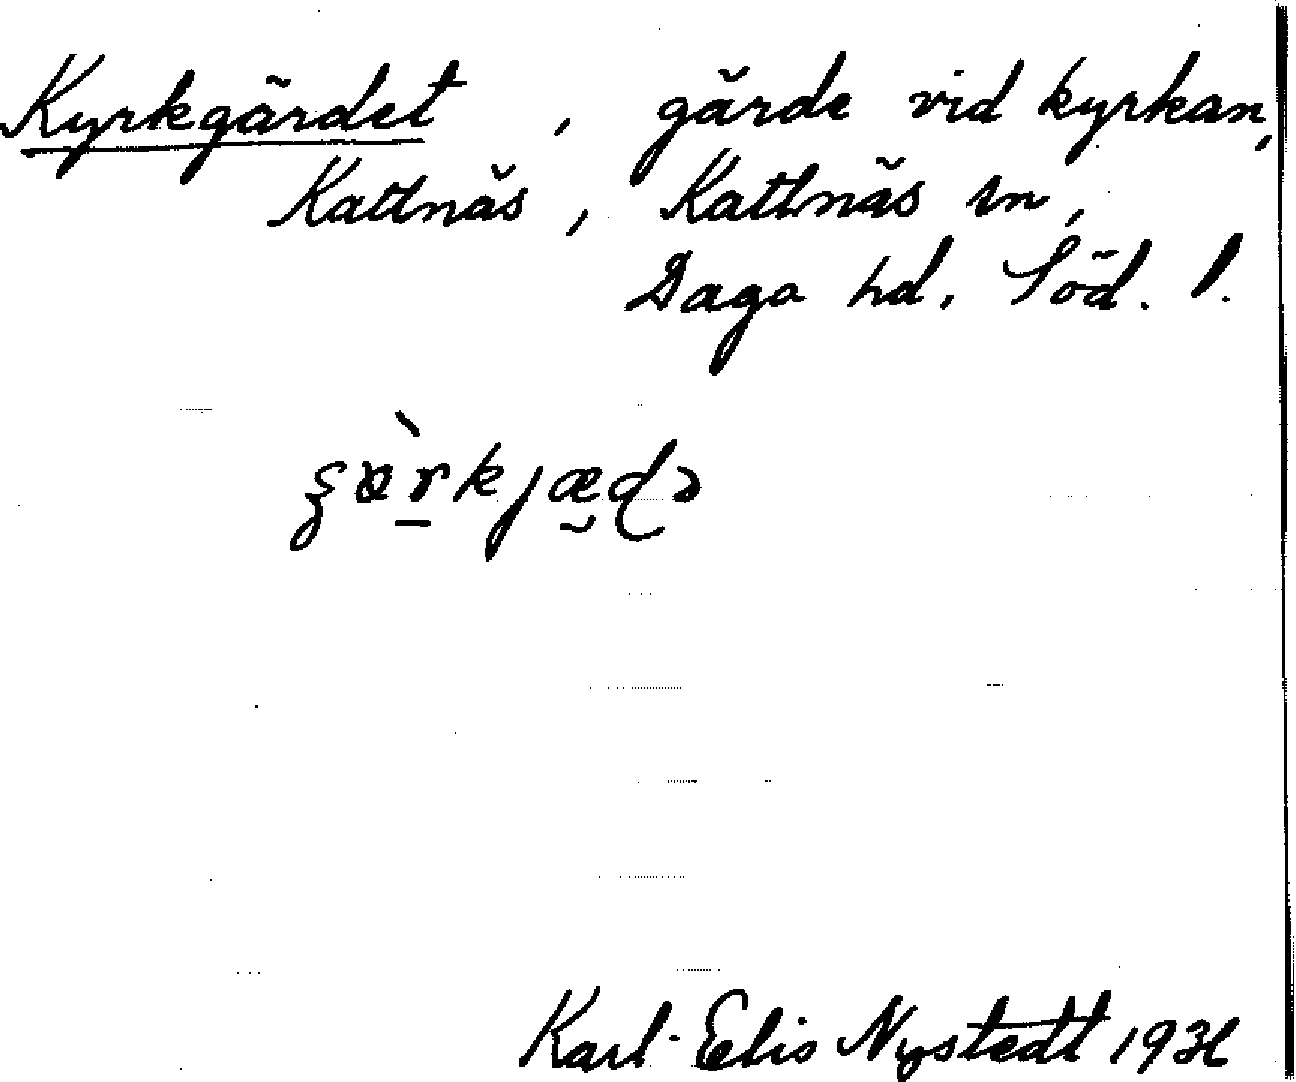 Kyrkgärdet, gärde vid kyrkan,
Kattnäs, Kattnäs sn,
Daga hd, Söd. l.
Karl-Elis Nystedt 1936